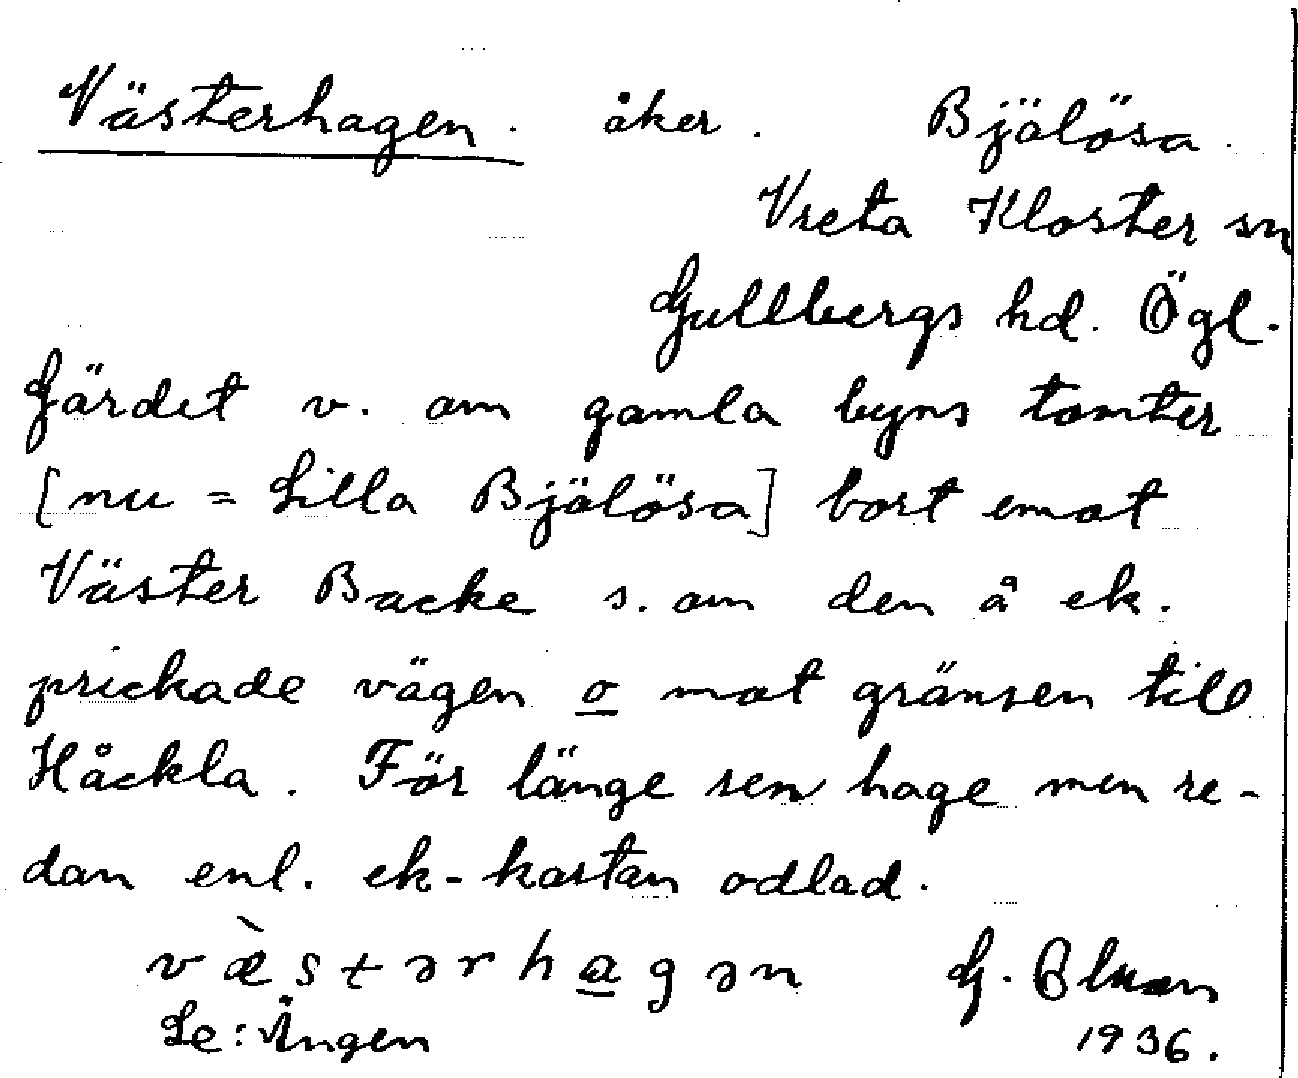 Västerhagen. åker. Bjälösa.
Vreta Kloster sn
Gullbergs hd. Ögl.
Gärdet v. om gamla byns tomter
[nu = Lilla Bjälösa] bort emot
Väster Backe s. om den å ek.
prickade vägen o mot gränsen till
Håckla. För länge sen hage men re-
dan enl. ek-kartan odlad.
væ̀stərhagən G.
Se: Ängen 1936.